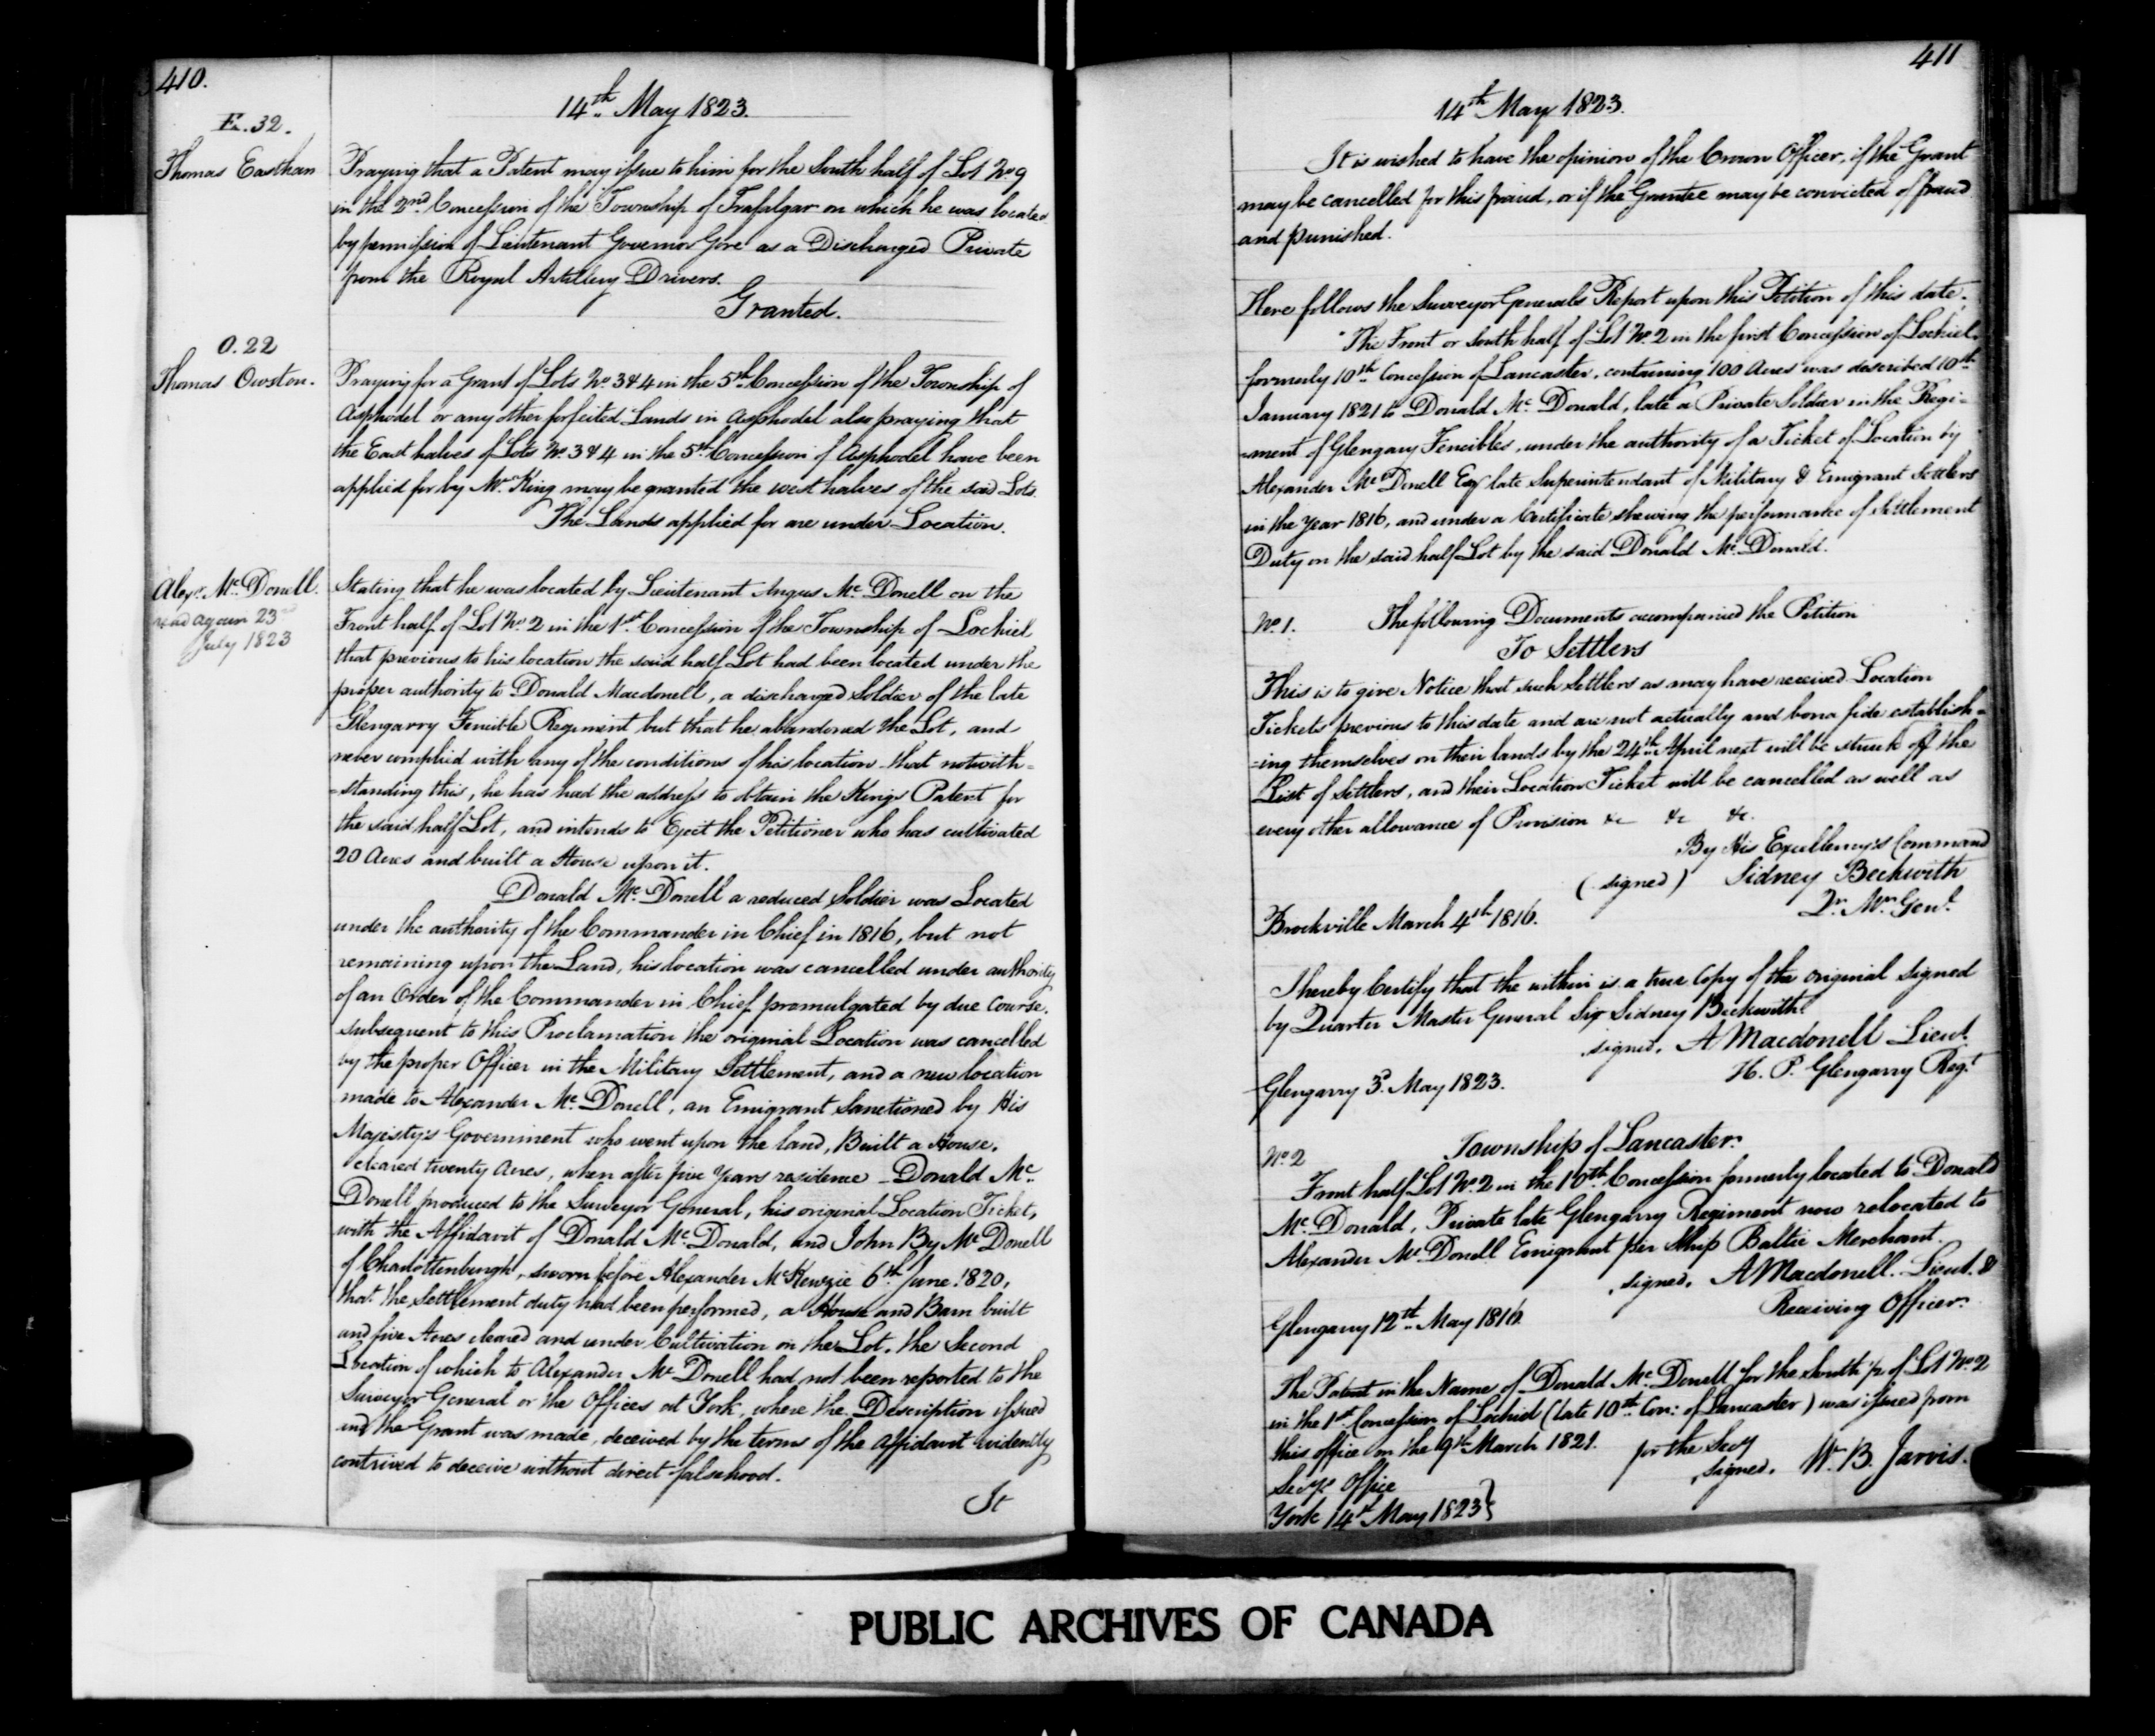 410.
14th May 1823.
E. 32.
Thomas Eastham
Praying that a Patent may issue to him for the South half of Lot No 9
in the 2nd Concession of the Township of Trafalgar on which he was located
by permission of Lieutenant Governor Gore as a Discharged Private
from the Royal Artillery Drivers.
Granted.
O. 22
Thomas Owston.
Praying for a Grant of Lots No. 3 & 4 in the 5th Concession of the Township of
Asphodel or any other forfeited Lands in Asphodel also praying that
the East halves of Lots No. 3 & 4 in the 5th Concession of Asphodel have been
applied for by Mr. King may be granted the west halves of the said Lots.
The Lands applied for are under Location.
Alexr. Mc. Donell.
read again 23rd
July 1823
Stating that he was located by Lieutenant Angus Mc Donell on the
Front half of Lot No. 2 in the 1st Concession of the Township of Lochiel
that previous to his location the said half Lot had been located under the
proper authority to Donald Macdonell, a discharged Soldier of the late
Glengarry Fencible Regiment but that he abandoned the Lot, and
never complied with any of the conditions of his location - that notwith=
=standing this, he has had the address to obtain the Kings Patent for
the said half Lot, and intends to Eject the Petitioner who has cultivated
20 Acres and built a House upon it.
Donald Mc. Donell a reduced Soldier was Located
under the authority of the Commander in Chief in 1816, but not
remaining upon the Land, his location was cancelled under authority
of an Order of the Commander in Chief promulgated by due course.
subsequent to this Proclamation the original Location was cancelled
by the proper Officer in the Military Settlement, and a new location
made to Alexander Mc. Donell, an Emigrant Sanctioned by His
Majesty's Government who went upon the land, Built a House,
cleared twenty Acres, when after five Years residence - Donald Mc.
Donell produced to the Surveyor General, his original Location Ticket,
with the Affidavit of Donald Mc. Donald, and John By Mc Donell
of Charlottenburgh, sworn before Alexander McKenzie 6th June 1820,
that the Settlement duty had been performed, a House and Barn built
and five Acres cleared and under Cultivation on the Lot. the Second
Location of which to Alexander Mc Donell had not been reported to the
Surveyor General or the Offices at York, where the Description issued
and the Grant was made, deceived by the terms of the Affidavit evidently
contrived to deceive without direct falsehood.
It
411
14th May 1823.
It is wished to have the opinion of the Crown Officer, if the Grant
may be cancelled for this fraud, or if the Grantee may be convicted of fraud
and punished.
Here follows the Surveyor Generals Report upon this Petition of this date.
"The Front or South half of Lot No. 2 in the first Concession of Lochiel,
formerly 10th Concession of Lancaster, containing 100 Acres was described 10th
January 1821 to Donald Mc. Donald, late a Private Soldier in the Regi=
=ment of Glengary Fencibles, under the authority of a Ticket of Location by
Alexander Mc Donell Esqr late Superintendant of Military & Emigrant Settlers
in the Year 1816, and under a Certificate shewing the performance of Settlement
Duty on the said half Lot by the said Donald Mc. Donald.
No. 1. The following Documents accompanied the Petition
To Settlers
This is to give Notice that such Settlers as may have received Location
Tickets previous to this date and are not actually and bona fide establish=
=ing themselves on their lands by the 24th April next will be struck off the
List of Settlers, and their Location Ticket will be cancelled as well as
every other allowance of Provision &c &c &c.
By His Excellency's Command
(signed) Sidney Beckwith
Qr. Mr. Genl.
Brockville March 4th 1816.
I hereby Certify that the within is a true Copy of the original signed
by Quarter Master General Sir Sidney Beckwith.
signed. A Macdonell Lieut.
H. P. Glengarry Regt.
Glengarry 3d. May 1823.
No. 2 Township of Lancaster.
Front half Lot No. 2 in the 10th Concession formerly located to Donald
Mc. Donald, Private late Glengarry Regiment now relocated to
Alexander Mc. Donell Emigrant per Ship Baltic Merchant.
signed. A Macdonell. Lieut. &
Receiving Officer.
Glengarry 12th May 1816.
The Patent in the Name of Donald Mc. Donell for the South ½ of Lot No. 2
in the 1st Concession of Lochiel (late 10th Con: of Lancaster) was issued from
this office on the 9th March 1821.
for the Secy
signed. W. B. Jarvis.
Secys Office
York 14th May 1823}
PUBLIC ARCHIVES OF CANADA